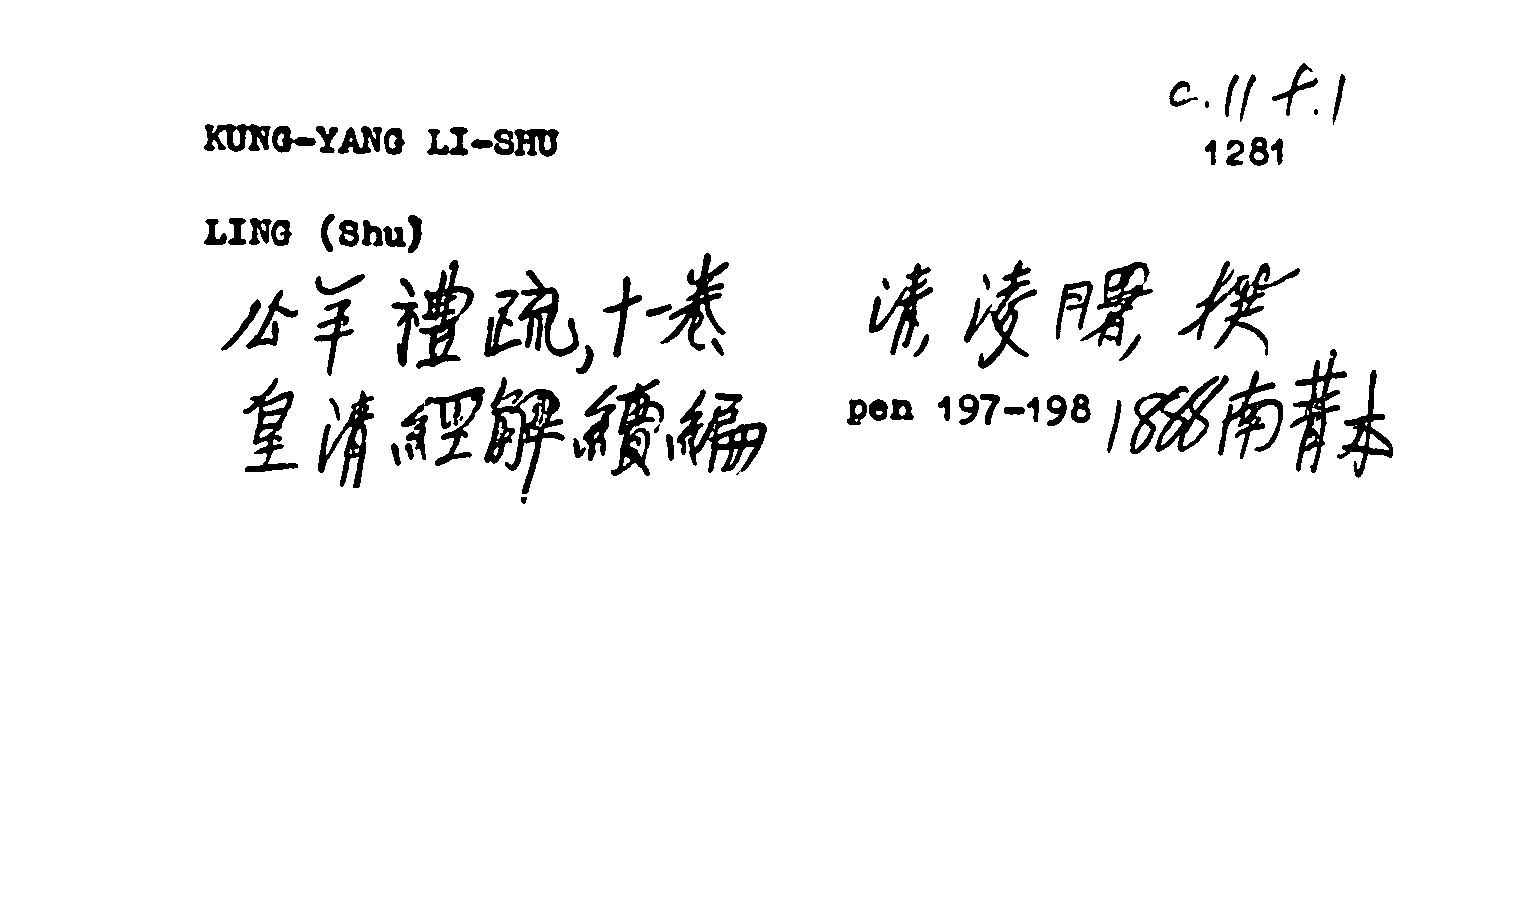 c.11 f.1
KUNG-YANG LI-SHU 1281
LING (Shu)
公羊禮疏,十一卷 清,凌曙,撰
皇清經解續編 pen 197-198 1888南菁本